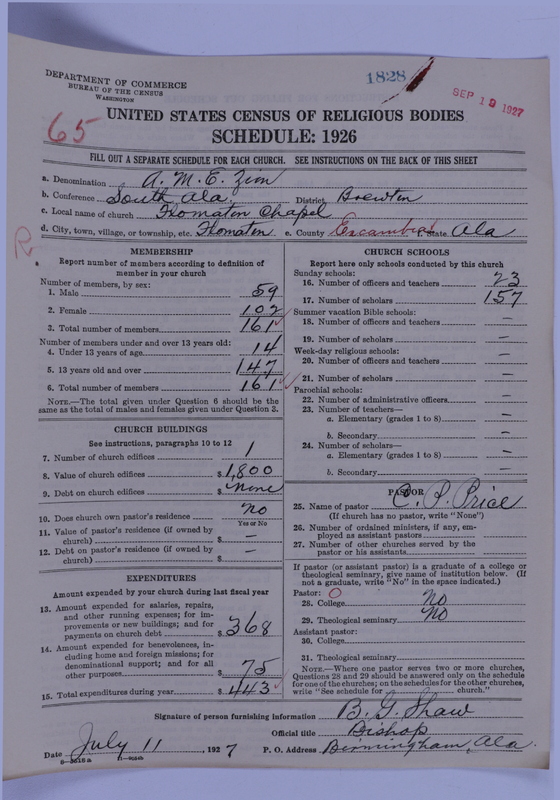 1828
SEP 19 1927
DEPARTMENT OF COMMERCE
BUREAU OF THE CENSUS
WASHINGTON
65
UNITED STATES CENSUS OF RELIGIOUS BODIES
SCHEDULE: 1926
FILL OUT A SEPARATE SCHEDULE FOR EACH CHURCH. SEE INSTRUCTIONS ON THE BACK OF THIS SHEET
a. Denomination A. M. E. Zion
b. Conference South Ala. District Brewton
c. Local name of church Flomaton Chapel
d. City, town, village, or township, etc. Flomaton e. County Escambia f. State Ala
R
MEMBERSHIP
Report number of members according to definition of
member in your church
Number of members, by sex:
1. Male 59
2. Female 102
3. Total number of members 161
Number of members under and over 13 years old:
4. Under 13 years of age 14
5. 13 years old and over 147
6. Total number of members 161
NOTE.—The total given under Question 6 should be the
same as the total of males and females given under Question 3.
CHURCH BUILDINGS
See instructions, paragraphs 10 to 12
7. Number of church edifices 1
8. Value of church edifices $ 1,800
9. Debt on church edifices $ None
10. Does church own pastor's residence? No
Yes or No
11. Value of pastor's residence (if owned by
church) $ —
12. Debt on pastor's residence (if owned by
church) $ —
EXPENDITURES
Amount expended by your church during last fiscal year
13. Amount expended for salaries, repairs,
and other running expenses; for im-
provements or new buildings; and for
payments on church debt $ 368
14. Amount expended for benevolences, in-
cluding home and foreign missions; for
denominational support; and for all
other purposes $ 75
15. Total expenditures during year $ 443
CHURCH SCHOOLS
Report here only schools conducted by this church
Sunday schools:
16. Number of officers and teachers 23
17. Number of scholars 157
Summer vacation Bible schools:
18. Number of officers and teachers —
19. Number of scholars —
Week-day religious schools:
20. Number of officers and teachers —
21. Number of scholars —
Parochial schools:
22. Number of administrative officers —
23. Number of teachers—
a. Elementary (grades 1 to 8) —
b. Secondary —
24. Number of scholars—
a. Elementary (grades 1 to 8) —
b. Secondary —
PASTOR
25. Name of pastor C. P. Price
(If church has no pastor, write "None")
26. Number of ordained ministers, if any, em-
ployed as assistant pastors
27. Number of other churches served by the
pastor or his assistants
If pastor (or assistant pastor) is a graduate of a college or
theological seminary, give name of institution below. (If
not a graduate, write "No" in the space indicated.)
Pastor: O
28. College No
29. Theological seminary No
Assistant pastor:
30. College
31. Theological seminary
NOTE.—Where one pastor serves two or more churches,
Questions 28 and 29 should be answered only on the schedule
for one of the churches; on the schedules for the other churches,
write "See schedule for church."
Signature of person furnishing information B. G. Shaw
Official title Bishop
Date July 11, 1927 P. O. Address Birmingham, Ala.